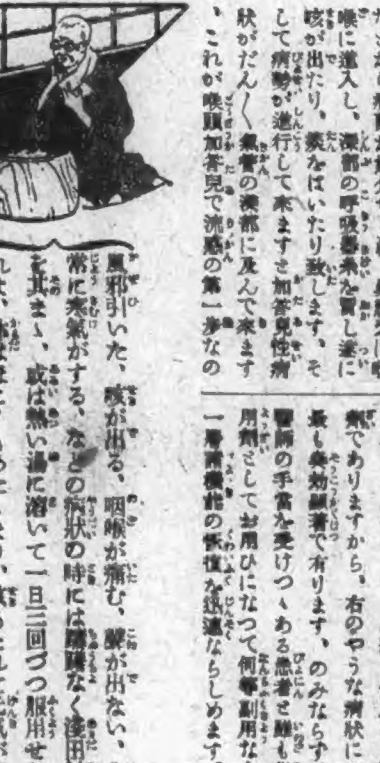 喉に進入し、深部の呼吸器系を冒し遂に
咳が出たり、痰をはいたり致します、そ
して病勢が進行して来ますと加答兒性病
狀がだん〱氣管の深部に及んで来ます
、これが喉頭加答兒で流感の第一歩なの
劑でありますから、右のやうな病狀に
最も奏効顯著で有ります、のみならず
醫師の手當を受けつゝある患者と雖も
用劑としてお用ひになつて何等副用な
一層諸機能の恢復を迅速ならしめます
風邪引いた、咳が出る、咽喉が痛む、聲が出ない、
常に寒氣がする、などの病狀の時には躊躇なく淺田
を其まゝ、或は熱い湯に溶いて一日三回づつ服用せ